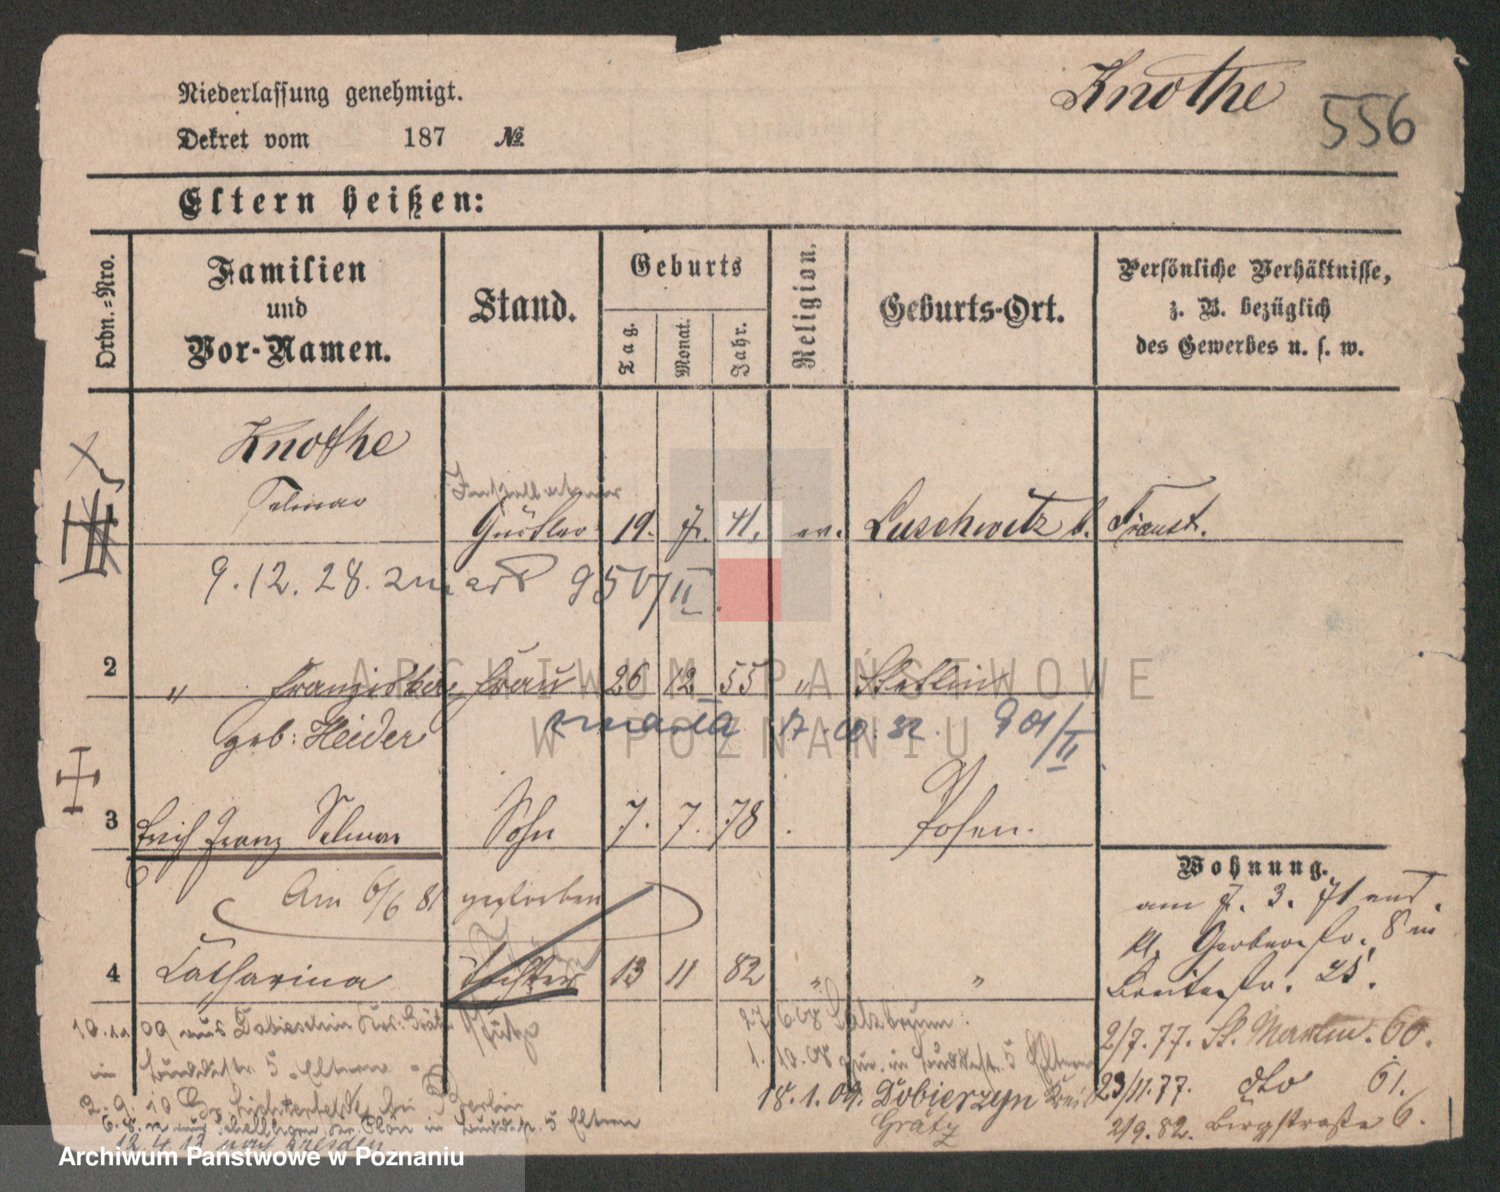 Niederlassung genehmigt.
Knothe
556
Dekret vom 187 №
Eltern heißen:
Ordn.-Nro.
Familien
und
Vor-Namen.
Stand.
Geburts
Tag.
Monat.
Jahr.
Religion.
Geburts-Ort.
Persönliche Verhältnisse,
z. B. bezüglich
des Gewerbes u. s. w.
Knothe
Selmar
Gürtler 19. 7. 41. ev. Luschwitz b. Fraust.
9.12.28. zmarł 950/II
2 " Franziska, Frau 26 12 55 " Stettin
geb: Heider
zmarła 17.10.32. 901/II
3 Erich Franz Selmar Sohn 7. 7. 78 Posen.
Am 6/6 81 gestorben
4 Catharina Tochter 13 11 82 " "
Wohnung.
am 7. 3. 71
kl. Gerberstr. 8
Breitestr. 25.
2/7.77. St. Martin. 60.
23/11.77. dto 61.
2/9.82. Bergstraße 6.
10.11 09 aus
5 Eltern
27/6 08 Salzbrunn
1.10.08 5 Eltern
18.1.09. Dobierzyn Kreis
Grätz
2.9.10 Gr. Lichterfelde bei Berlin
5 Eltern
12 4 13 nach Dresden
ARCHIWUM PAŃSTWOWE
W POZNANIU
Archiwum Państwowe w Poznaniu